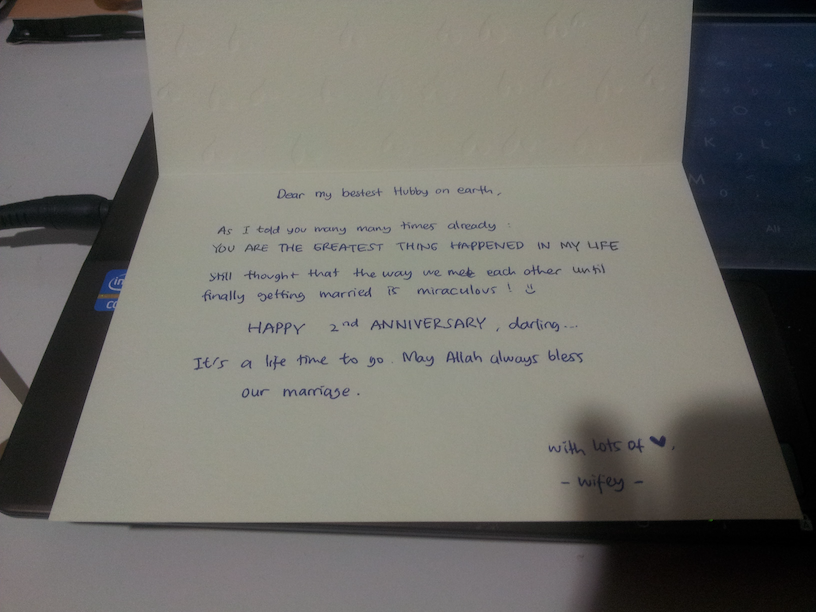 Dear my bestest Hubby on earth,
As I told you many many times already :
YOU ARE THE GREATEST THING HAPPENED IN MY LIFE
Still thought that the way we met each other until
finally getting married is miraculous ! ☺
HAPPY 2nd ANNIVERSARY, darling...
It's a life time to go. May Allah always bless
our marriage.
with lots of ♥.
- wifey -
intel
O P
K L
M
Alt